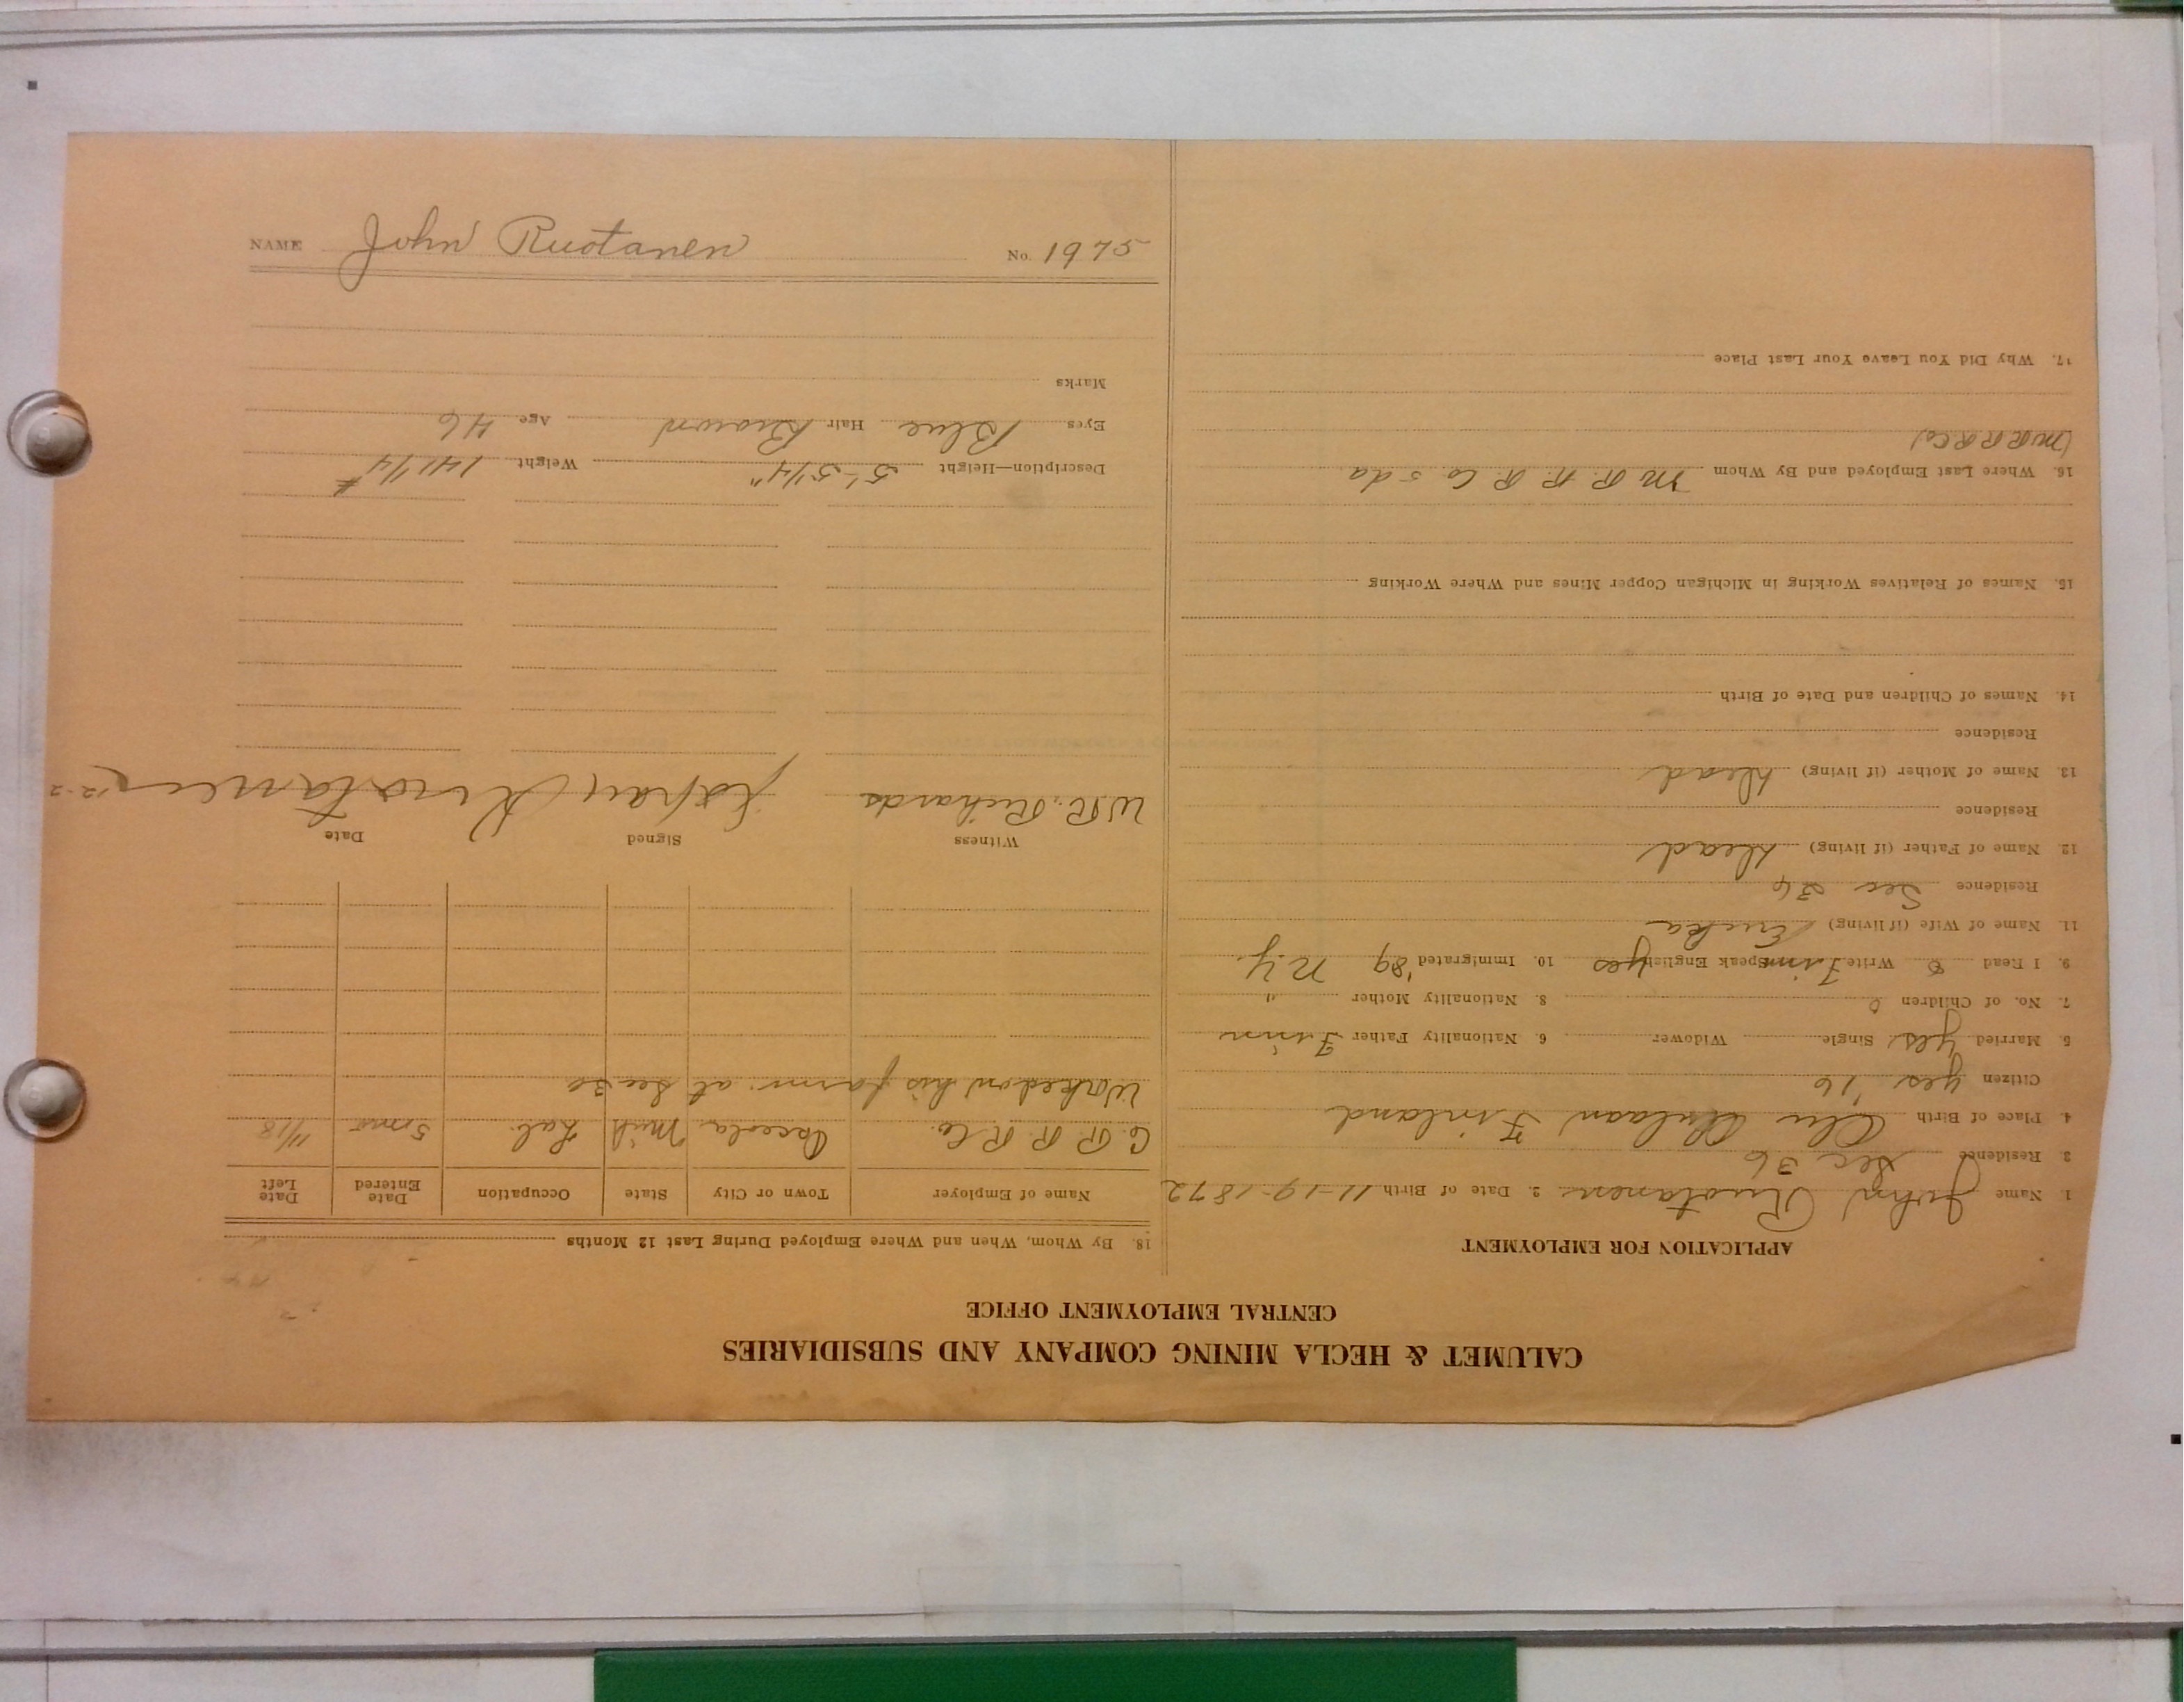 CALUMET & HECLA MINING COMPANY AND SUBSIDIARIES
CENTRAL EMPLOYMENT OFFICE
APPLICATION FOR EMPLOYMENT
1. Name John Ruotanen 2. Date of Birth 11-19-1872
3. Residence Sec 36
4. Place of Birth Finland
Citizen yes '16
5. Married yes Single Widower 6. Nationality Father Finn
7. No. of Children 0 8. Nationality Mother "
9. I Read & Write Finn Speak English yes 10. Immigrated '89 N.Y.
11. Name of Wife (if living) Ericka
Residence Sec 36
12. Name of Father (if living) dead
Residence
13. Name of Mother (if living) dead
Residence
14. Names of Children and Date of Birth
15. Names of Relatives Working in Michigan Copper Mines and Where Working
16. Where Last Employed and By Whom M R R R Co 5 da
(M R R R Co)
17. Why Did You Leave Your Last Place
18. By Whom, When and Where Employed During Last 12 Months
Name of Employer Town or City State Occupation Date Entered Date Left
C. R. R. R. Co. Osceola Mich Lab. 5 mos 11/18
Worked on his farm at Sec 30
Witness Signed Date
W.R. Richards Ruotanen 12-2
Description—Height 5'-5 1/4" Weight 141 1/4 #
Eyes Blue Hair Brown Age 46
Marks
NAME John Ruotanen No. 1975